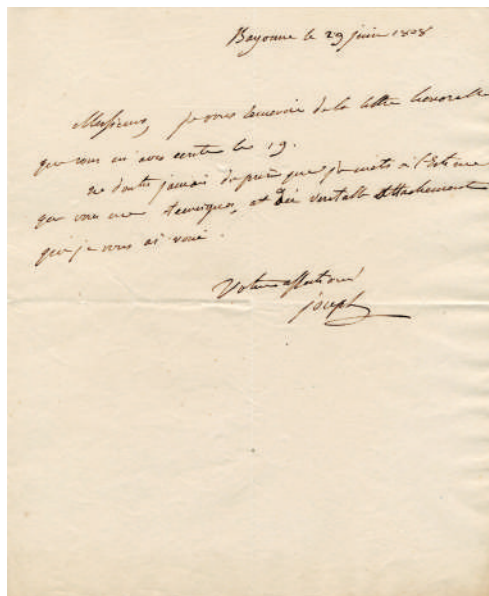 Bayonne le 29 juin 1808
Messieurs, je vous remercie de la lettre honorable
que vous m'avez ecrite le 19.
ne doutes jamais du prix que je mets à l'Estime
que vous me temoignes, et du veritable Attachement
que je vous ai voué.
Votre affectioné
joseph